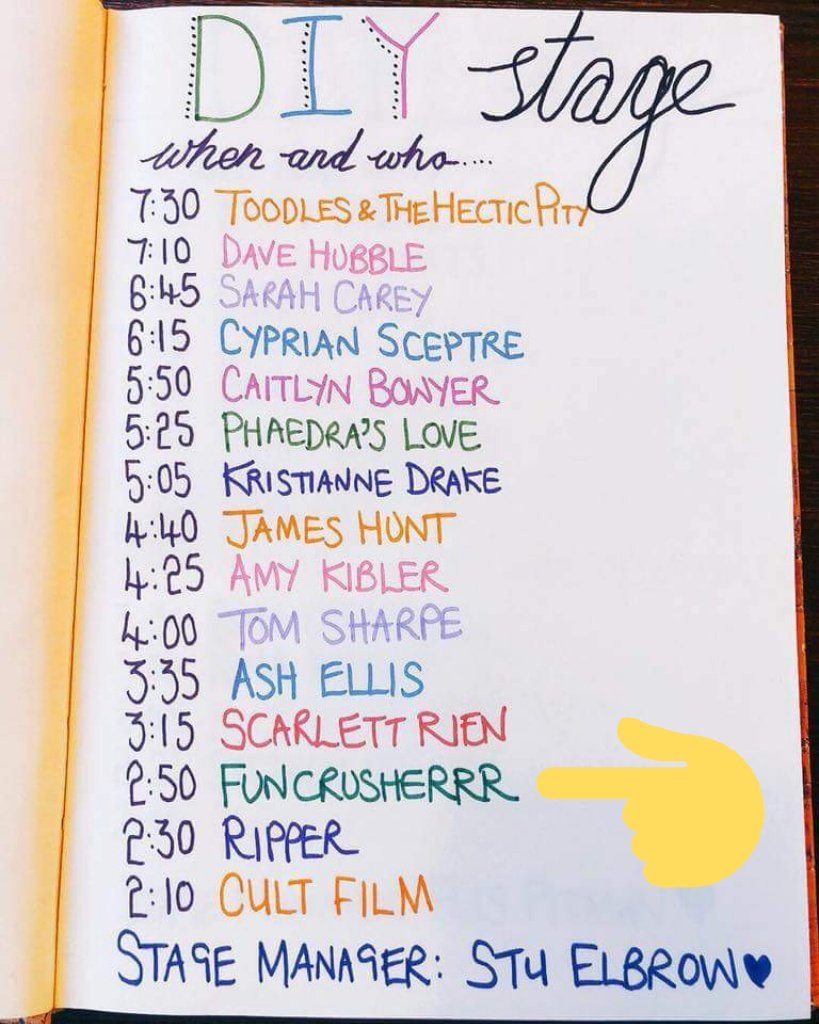 DIY stage
when and who....
7:30 TOODLES & THE HECTIC PITY
7:10 DAVE HUBBLE
6:45 SARAH CAREY
6:15 CYPRIAN SCEPTRE
5:50 CAITLYN BOWYER
5:25 PHAEDRA'S LOVE
5:05 KRISTIANNE DRAKE
4:40 JAMES HUNT
4:25 AMY KIBLER
4:00 TOM SHARPE
3:35 ASH ELLIS
3:15 SCARLETT RIEN
2:50 FUNCRUSHERRR
2:30 RIPPER
2:10 CULT FILM
STAGE MANAGER: STU ELBROW♥